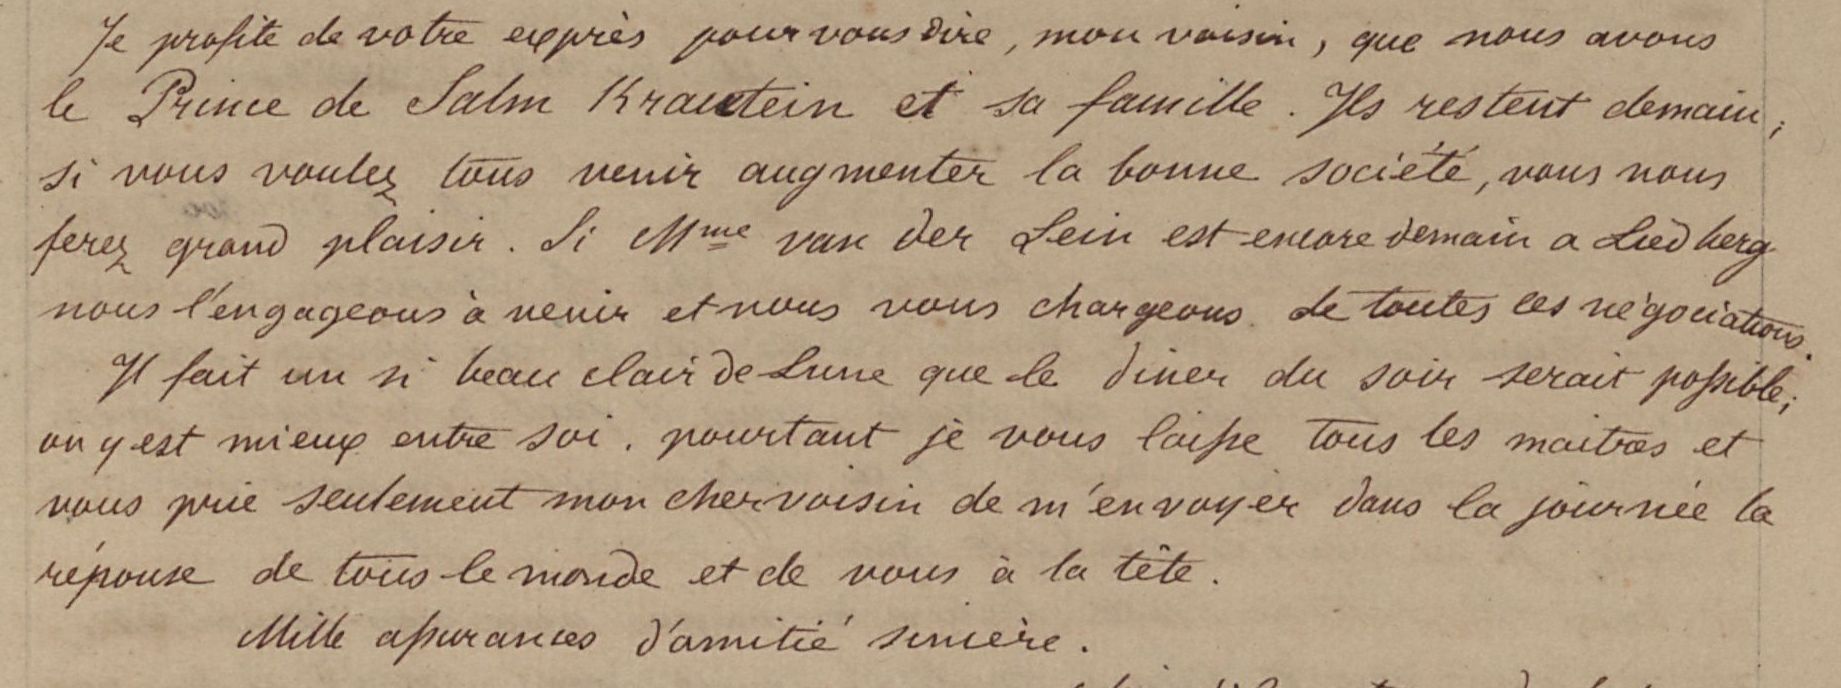 Je profite de votre exprès pour vous dire, mon voisin, que nous avons
le Prince de Salm Krautein et sa famille. Ils restent demain;
si vous voulez tous venir augmenter la bonne société, vous nous
ferez grand plaisir. Si Mme van der Lein est encore demain a Liedberg
nous l'engageons à venir et nous vous chargeons de toutes ces négociations.
Il fait un si beau clair de Lune que le diner du soir serait possible;
on y est mieux entre soi. pourtant je vous laisse tous les maitres et
vous prie seulement mon cher voisin de m'envoyer dans la journée la
réponse de tous le monde et de vous à la tête.
Mille assurances d'amitié sincère.